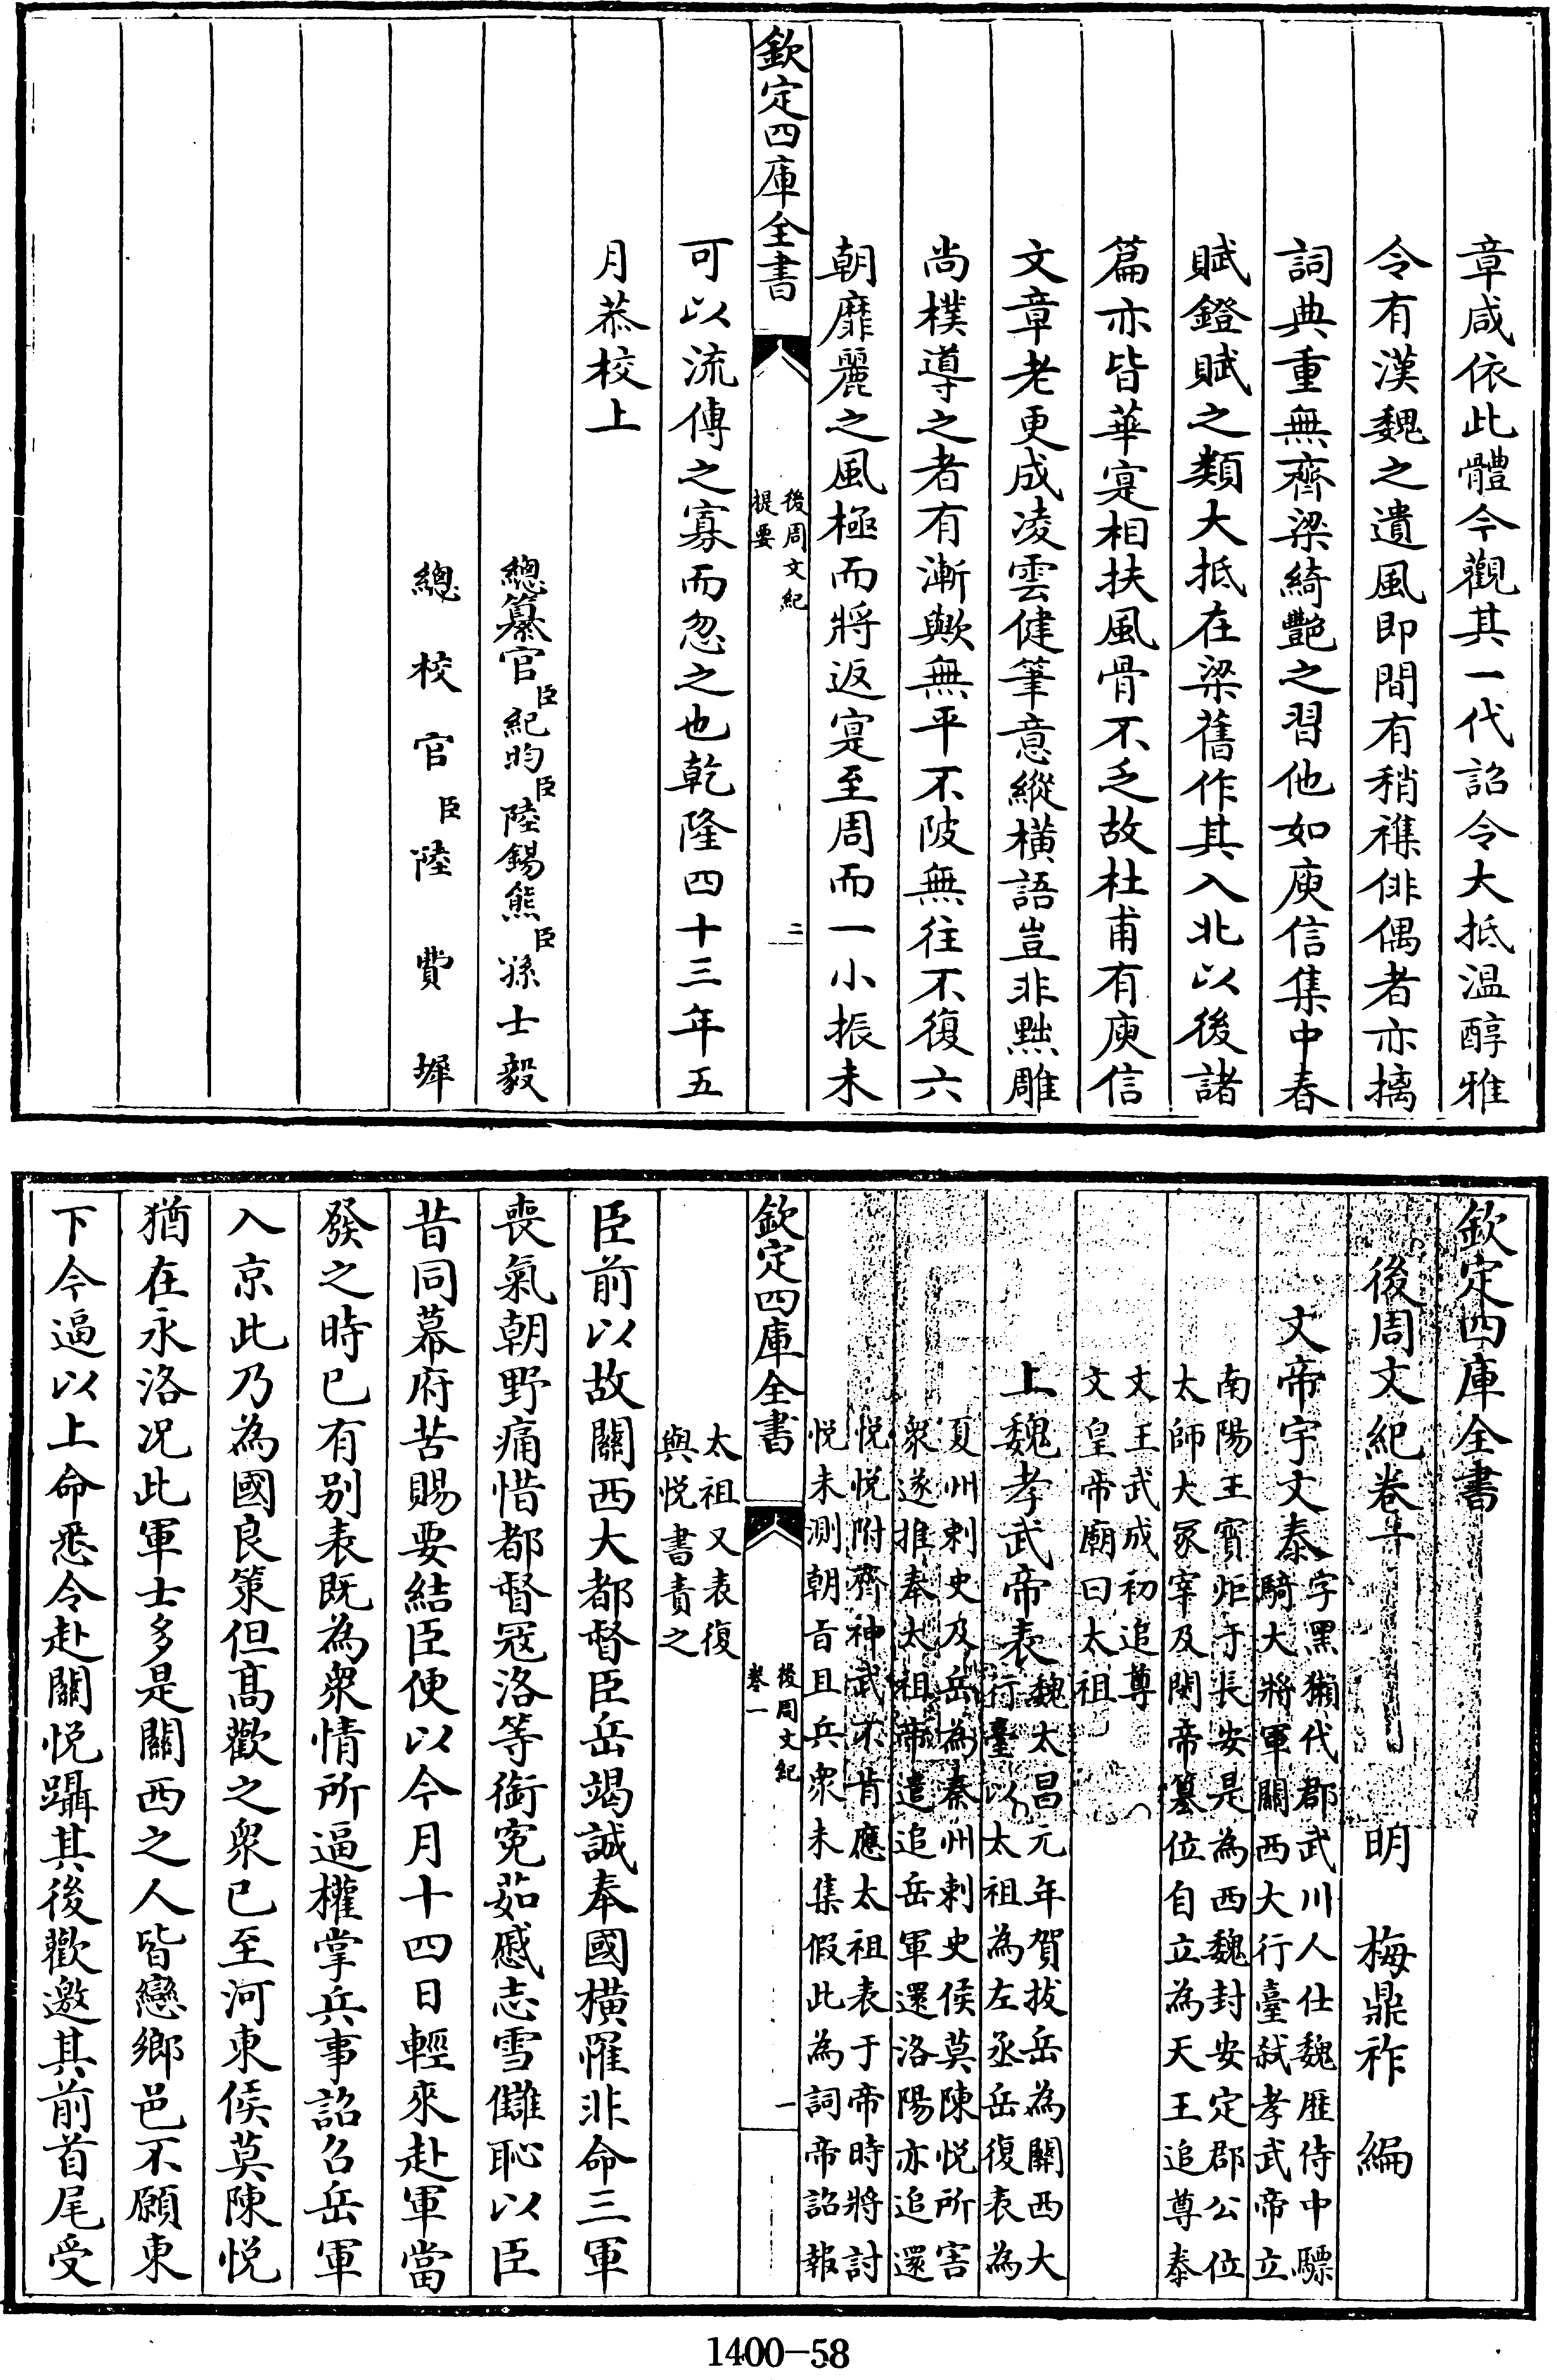 章咸依此體今觀其一代詔令大抵温醇雅
令有漢魏之遺風即間有稍襍俳偶者亦摛
詞典重無齊梁綺艶之習他如庾信集中春
賦鐙賦之類大抵在梁舊作其入北以後諸
篇亦皆華寔相扶風骨不乏故杜甫有庾信
文章老更成凌雲健筆意縱橫語豈非黜雕
尚樸導之者有漸歟無平不陂無往不復六
朝靡麗之風極而將返寔至周而一小振未
欽定四庫全書
後周文紀
提要
二
可以流傳之寡而忽之也乾隆四十三年五
月恭校上
總纂官臣紀昀臣陸錫熊臣孫士毅
總校官臣陸費墀
欽定四庫全書
後周文紀卷一
明 梅鼎祚 編
文帝宇文泰字黑獺代郡武川人仕魏歴侍中驃
騎大將軍關西大行臺弑孝武帝立
南陽王寳炬于長安是為西魏封安定郡公位
太師大冢宰及閔帝簒位自立為天王追尊泰
文王武成初追尊
文皇帝廟曰太祖
上魏孝武帝表魏太昌元年賀拔岳為關西大
行臺以太祖為左丞岳復表為
夏州刺史及岳為秦州刺史侯莫陳悦所害
衆遂推奉太祖帝遣追岳軍還洛陽亦追還
悦悦附齊神武不肯應太祖表于帝時將討
悦未測朝旨且兵衆未集假此為詞帝詔報
欽定四庫全書
後周文紀
卷一
一
太祖又表復
與悦書責之
臣前以故關西大都督臣岳竭誠奉國橫罹非命三軍
喪氣朝野痛惜都督冦洛等銜寃茹慼志雪讎恥以臣
昔同幕府苦賜要結臣便以今月十四日輕來赴軍當
發之時已有别表既為衆情所逼權掌兵事詔召岳軍
入京此乃為國良策但髙歡之衆已至河東侯莫陳悦
猶在永洛况此軍士多是關西之人皆戀鄉邑不願東
下今逼以上命悉令赴關悦躡其後歡邀其前首尾受
1400-58